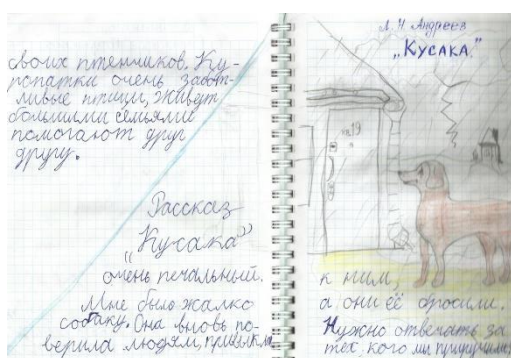 своих птенчиков. Ку-
ропатки очень забот-
ливые птицы, живут
большими семьями
помогают друг
другу.
Рассказ
„Кусака”
очень печальный.
Мне было жалко
собаку. Она вновь по-
верила людям, привыкла
Л. Н. Андреев
„Кусака”
кв 19
к ним,
а они её бросили.
Нужно отвечать за
тех, кого мы приручили